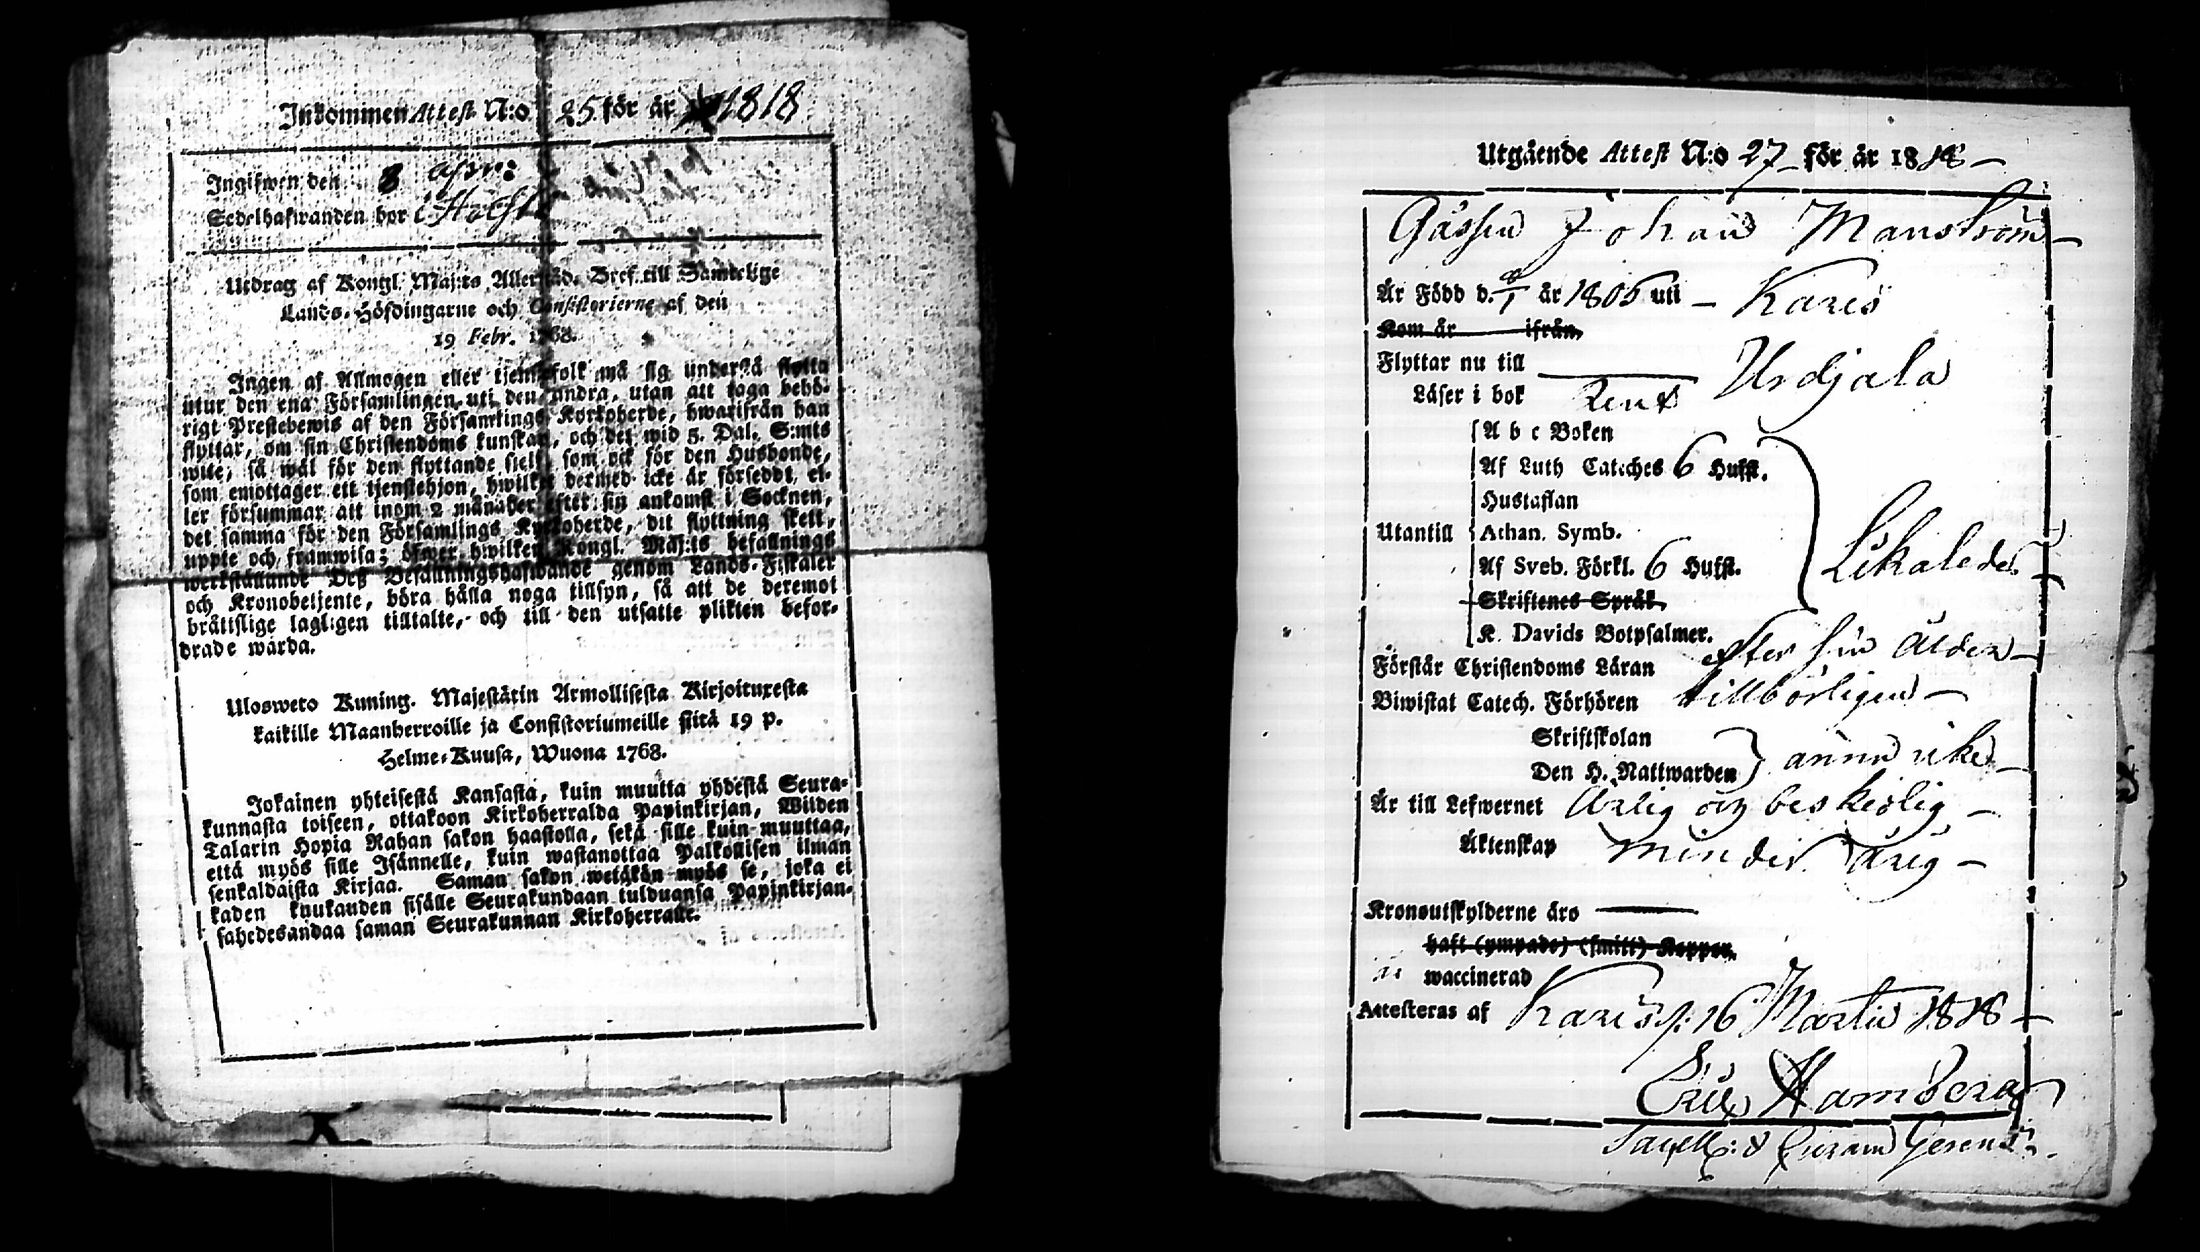 Inkommen Attest N:o 25 för år 1818
Ingifwen den 8 apr:
Sedelhafwanden bor i
Utdrag af Kongl. Maj:ts Allernåd. Bref till Samtelige
Lands-Höfdingarne och Consistorierne af den
19 Febr. 1768.
Ingen af Allmogen eller tjenstefolk må sig understå flytta
utur den ena Församlingen uti den andra, utan att taga behö-
rigt Prestebewis af den Församlings Kyrkoherde, hwarifrån han
flyttar, om sin Christendoms kunskap, och det wid 5. Dal. S:mts
wite, så wäl för den flyttande sielf, som ock för den Husbonde,
som emottager ett tjenstehjon, hwilket dermed icke är försedt, el-
ler försummar att inom 2 månader efter sin ankomst i Socknen,
det samma för den Församlings Kyrkoherde, dit flyttning skett,
uppte och framwisa; öfwer hwilken Kongl. Maj:ts befallnings
werkställande Deß Befallningshafwande genom Lands-Fiskaler
och Kronobetjente, böra hålla noga tillsyn, så att de deremot
bråttslige lagligen tilltalte, och till den utsatte plikten befor-
drade warda.
Ulosweto Kuning. Majestätin Armollisesta Kirjoituxesta
kaikille Maanherroille ja Consistoriumeille siitä 19 p.
Helme-Kuusa, Wuona 1768.
Jokainen yhteisestä Kansasta, kuin muutta yhdestä Seura-
kunnasta toiseen, ottakoon Kirkoherralda Papinkirjan, Wilden
Talarin Hopia Rahan sakon haastolla, sekä sille kuin muuttaa,
että myös sille Isännelle, kuin wastanottaa Palkollisen ilman
senkaldaista Kirjaa. Saman sakon wetäkön myös se, joka ei
kaden kuukauden sisälle Seurakundaan tulduansa Papinkirjan-
sahedesandaa saman Seurakunnan Kirkoherralle.
Utgående Attest N:o 27 för år 1818
Gåssen Johan Manström
Är Född d. 8/1 år 1806 uti Karis
Kom år ifrån
Flyttar nu till Urdjala
Läser i bok Rent
A b c Boken
Af Luth Cateches 6 Hufst.
Hustaflan
Utantill Athan. Symb. Likaledes
Af Sveb. Förkl. 6 Hufst.
Skriftenes Språk
K. Davids Botpsalmer.
Förstår Christendoms Läran efter sin ålder
Biwistat Catech. Förhören tillbörligen
Skriftskolan
Den H. Nattwarden ännu icke
Är till Lefwernet ärlig och beskedlig
Äktenskap minder årig
Kronoutskylderne äro
haft (ympade) (smitt) Koppor
är waccinerad
Attesteras af Karis p: 16 Martii 1818
Eric Hamberg
Sacell: & Curam Gerens.